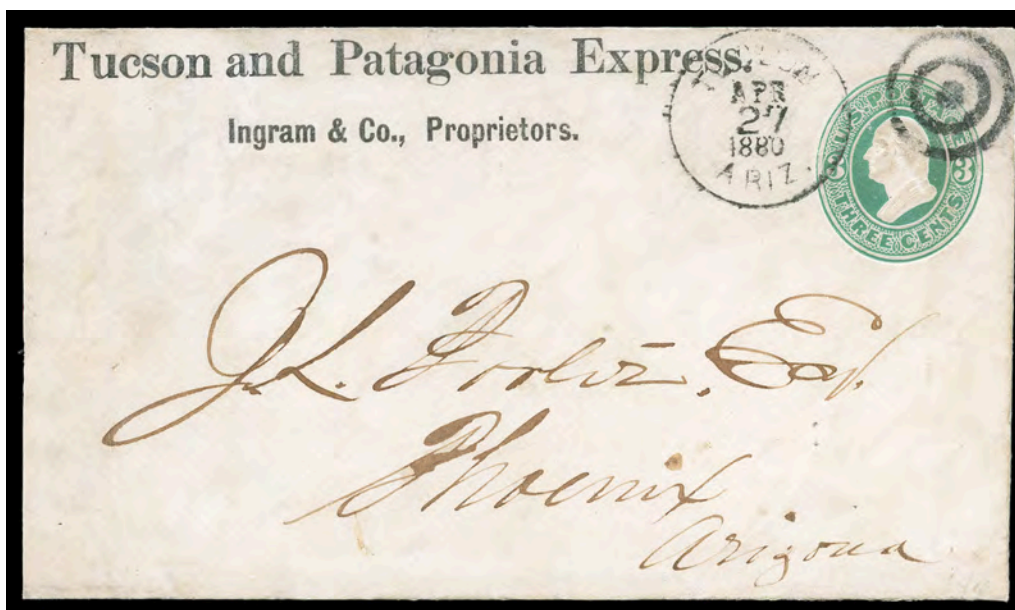 Tucson and Patagonia Express.
Ingram & Co., Proprietors.
TUCSON
APR
27
1880
ARIZ.
U.S. POSTAGE
3 3
THREE CENTS
J. L. Esq.
Phoenix
Arizona